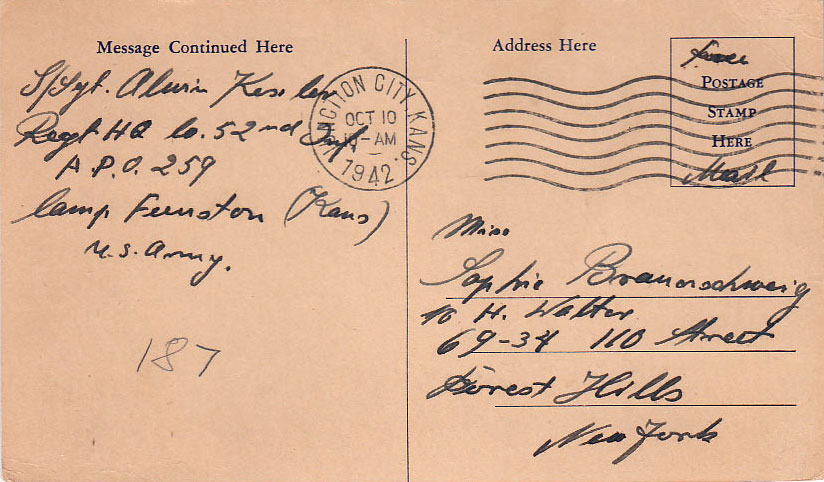 Message Continued Here
S/Sgt. Alwin Kessler
Regt HQ Co. 52nd Inf.
A.P.O. 259
Camp Funston (Kans)
U.S. Army.
187
JUNCTION CITY, KANS.
OCT 10
10-AM
1942
Address Here
Free
POSTAGE
STAMP
HERE
Mail
Miss
Sophie Braunschweig
c/o H. Walter
69-34 110 Street
Forest Hills
New York